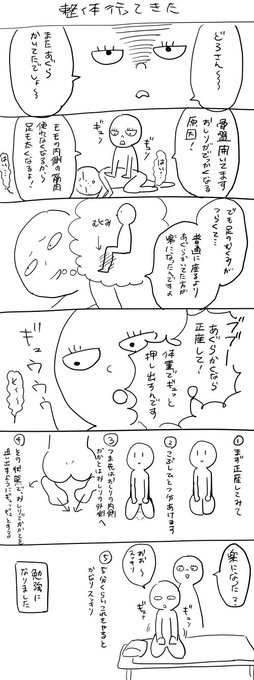 整体行ってきた
どろさん〜〜
またあぐら
かいてたでしょ〜
骨盤開いてます
おしりがでっかくなる
原因!
ギュッ
ギュッ
はい…
モモの内側の筋肉
使わなくなるから
足も太くなるよ!
でも足のむくみが
つらくて…
普通に座るより
あぐらかいてた方が
楽になったんですよ
むくみ
ブブー
あぐらかくなら
正座して!
体重でギュッと
押し出すんです
ギュウウゥ
①まず正座してみて
②こぶしひとつ分あけます
③つま先はおしりの内側
かかとはおしりの外側へ
④その状態で、おしりでかかとを
楽になった?
おお〜
スッキリ
ギュッ
ギュッ
⑤5分くらいこれをやると
かなりスッキリ
勉強に
なりました